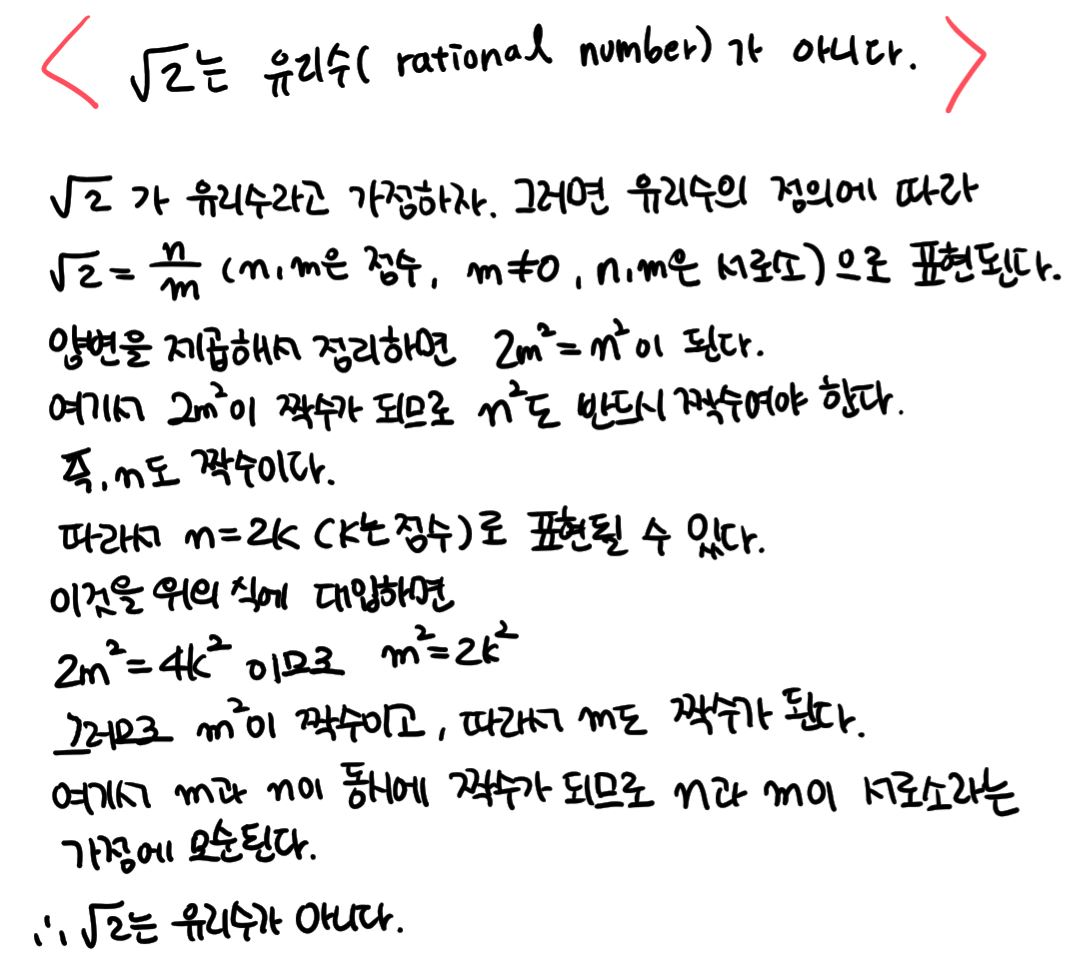 < √2는 유리수( rational number)가 아니다. >
√2가 유리수라고 가정하자. 그러면 유리수의 정의에 따라
√2 = n/m (n, m은 정수, m≠0, n, m은 서로소)으로 표현된다.
양변을 제곱해서 정리하면 2m²=n²이 된다.
여기서 2m²이 짝수가 되므로 n²도 반드시 짝수여야 한다.
즉, n도 짝수이다.
따라서 n=2k (k는 정수)로 표현될 수 있다.
이것을 위의 식에 대입하면
2m²=4k² 이므로 m²=2k²
그러므로 m²이 짝수이고, 따라서 m도 짝수가 된다.
여기서 m과 n이 동시에 짝수가 되므로 n과 m이 서로소라는
가정에 모순된다.
∴ √2는 유리수가 아니다.